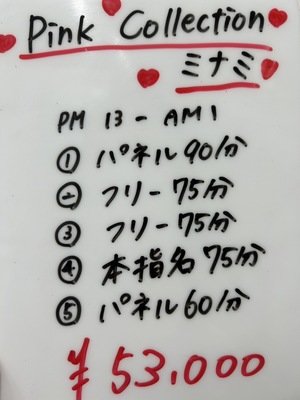 Pink Collection
ミナミ
PM 13 - AM1
① パネル 90分
② フリー 75分
③ フリー 75分
④ 本指名 75分
⑤ パネル 60分
¥53,000